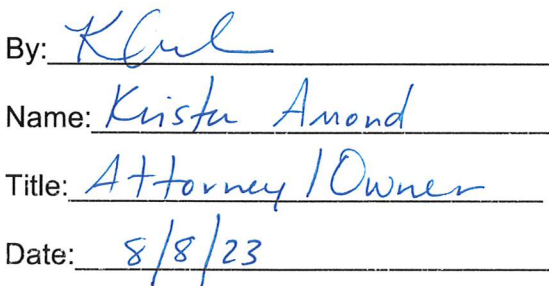 By:
Name: Krista Amond
Title: Attorney / Owner
Date: 8/8/23